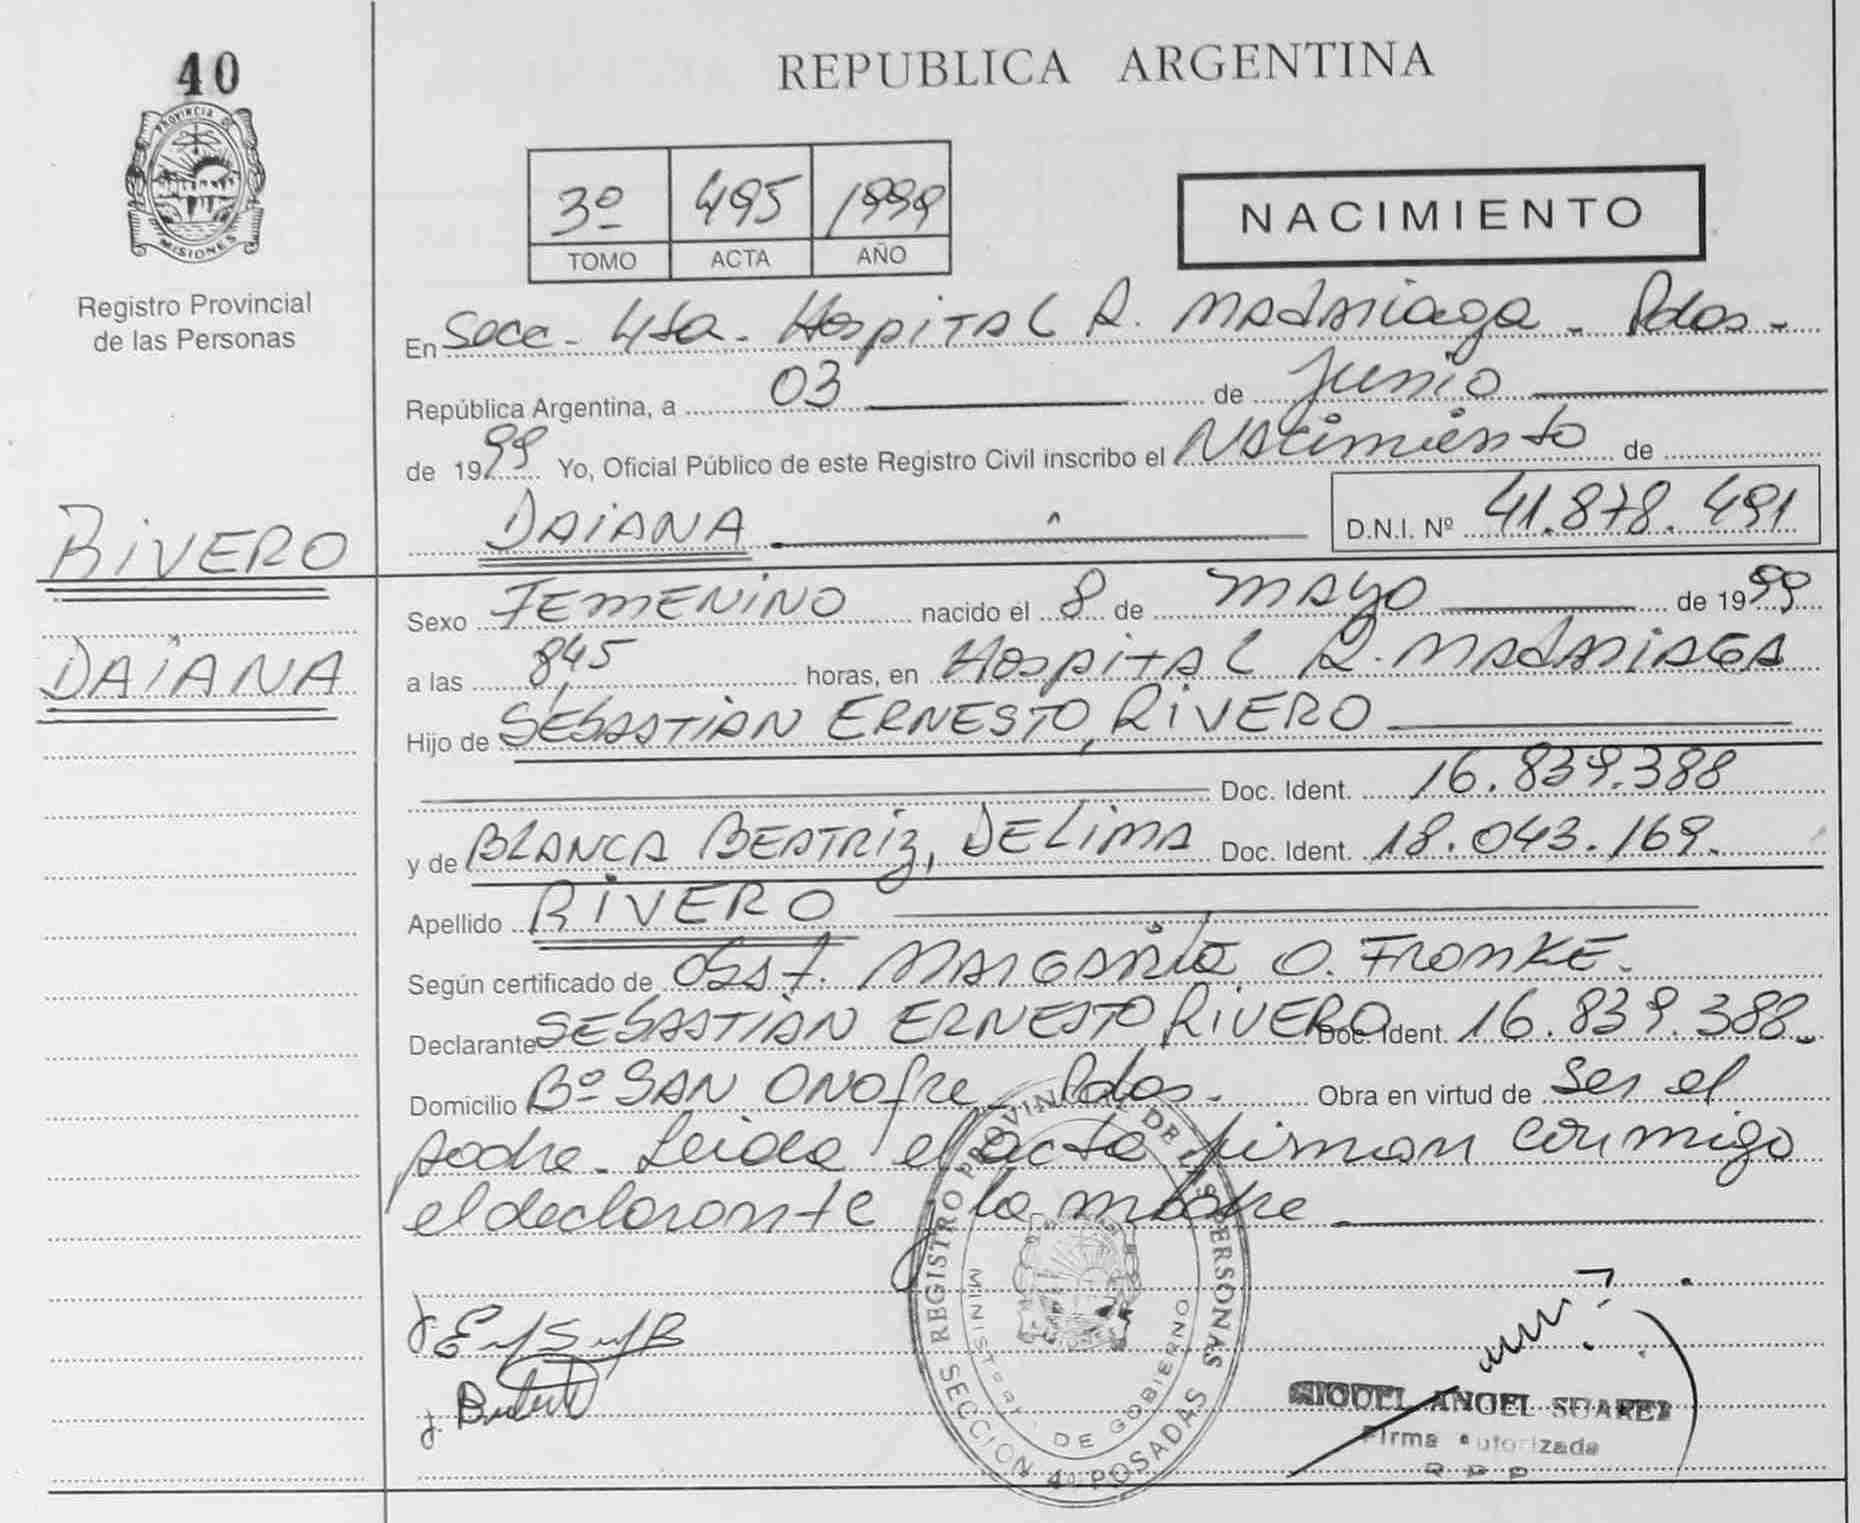 40
PROVINCIA DE
MISIONES
Registro Provincial
de las Personas
RIVERO
DAIANA
REPUBLICA ARGENTINA
3º 495 1999
TOMO ACTA AÑO
NACIMIENTO
En Secc. 4ta. Hospital R. Madariaga - Pdas.
República Argentina, a 03 de Junio
de 1999 Yo, Oficial Público de este Registro Civil inscribo el Nacimiento de
DAIANA D.N.I. Nº 41.878.491
Sexo FEMENINO nacido el 8 de MAYO de 1999
a las 8,45 horas, en Hospital R. MADARIAGA
Hijo de SEBASTIAN ERNESTO, RIVERO
Doc. Ident. 16.839.388
y de BLANCA BEATRIZ, DELIMA Doc. Ident. 18.043.169.
Apellido RIVERO
Según certificado de Obst. MARGARITA O. FRONKE.
Declarante SEBASTIAN ERNESTO RIVERO Doc. Ident. 16.839.388.
Domicilio Bº SAN ONOFRE Pdas. Obra en virtud de ser el
padre. Leida el acta firman conmigo
el declarante y la madre
REGISTRO PROVINCIAL DE LAS PERSONAS
MINISTERIO DE GOBIERNO
SECCION 4a POSADAS
MIGUEL ANGEL SUAREZ
Firma autorizada
R P P